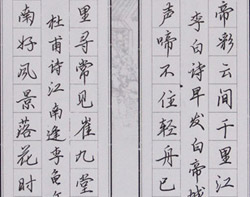 帝彩云间千里江
李白诗早发白帝城
声啼不住轻舟已
里寻常见崔九堂
杜甫诗江南逢李龟年
南好风景落花时